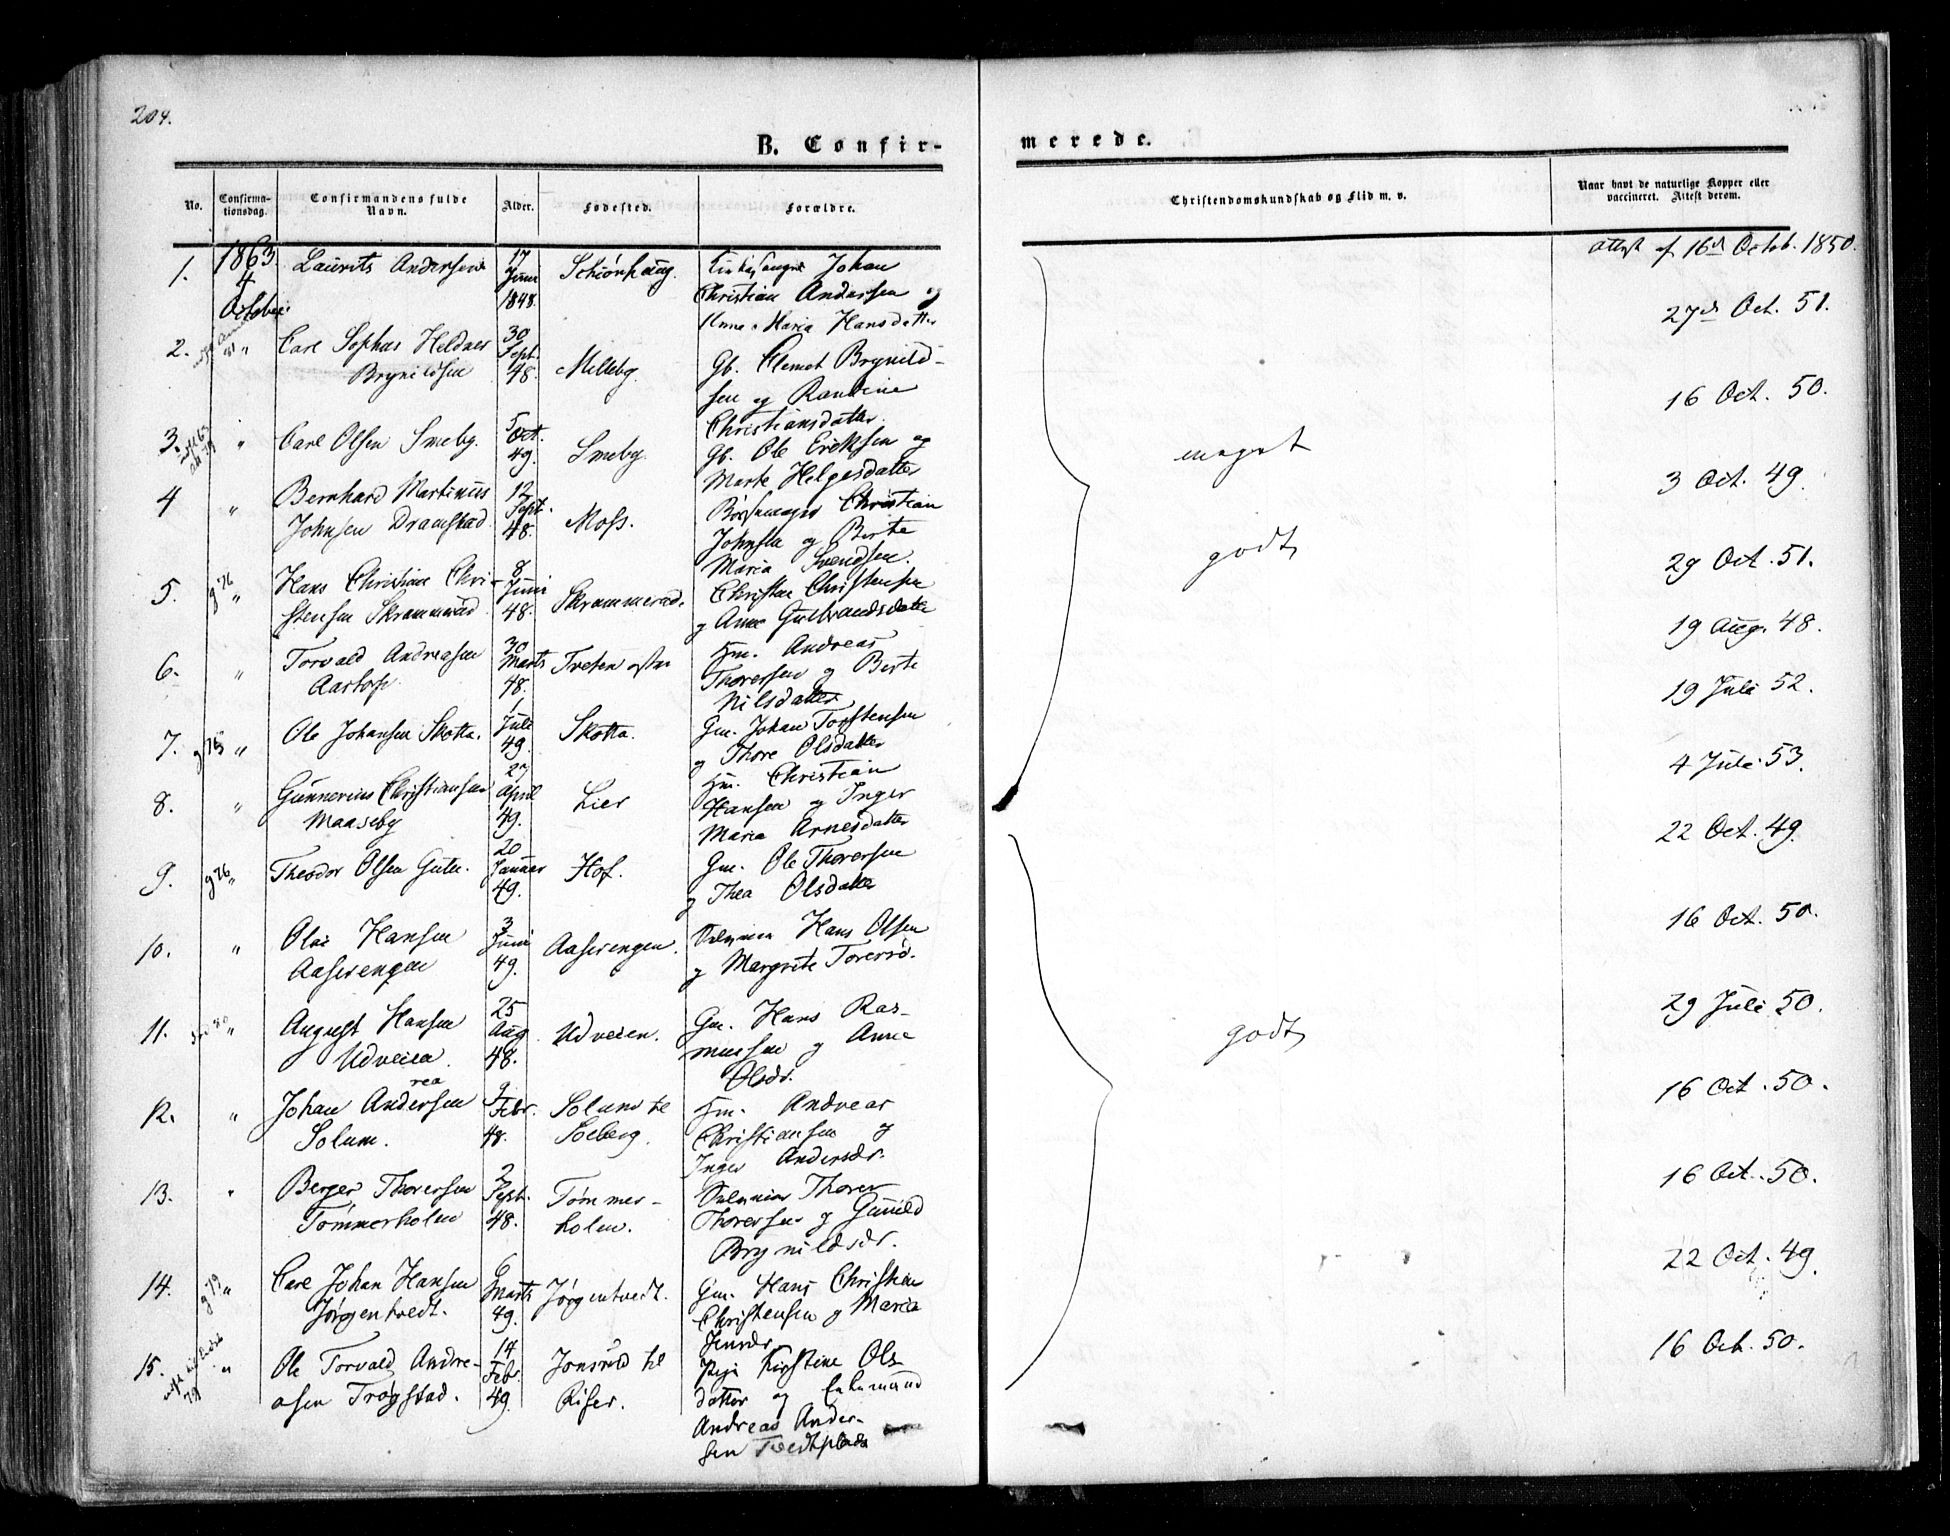 204.
B. Confir-
merede.
No.
Confirma-
tionsdag.
Confirmandens fulde
Navn.
Alder.
Fødested.
Forældre.
Christendomskundskab og Flid m. v.
Naar havt de naturlige Kopper eller
vaccineret. Attest derom.
1. 1863 Laurits Andersen 17 Schiønhaug. Kirkesanger Johan
4 October Juni 1848. Christian Andersen og
Anne Maria Hansdatter
attest af 16de Octob. 1850.
2. " Carl Sophus Heldner 30 Sept. 48. Milleby. Gb. Clemet Brynild-
Brynildsen sen og Randine
Christiansdatter
27de Oct. 51.
3. " Carl Olsen Smeby. 5 Oct. 49. Smeby. Gb. Ole Eriksen og
Marte Helgesdatter
16 Oct. 50.
4 " Bernhard Martinius 12 Sept. 48. Moss. Christian
Johnsen Dramstad Johnsen og Berte
Maria Svendsen.
3 Oct. 49.
5. g 76 " Hans Christian Chri- 8 Juni 48. Skrammerud. Christen Christensen
stensen Skrammerud og Anne Gulbrandsdatter
29 Oct. 51.
6. " Torvald Andreasen 30 Marts 48. Treten østre Hm. Andreas
Aastorp. Thoresen og Berte
Nilsdatter
19 Aug. 48.
7. g 75 " Ole Johansen Skotta. 1 Juli 49. Skotta. Gm. Johan Torstensen
og Thore Olsdatter
19 Juli 52.
8. " Gunnerius Christiansen 27 April 49. Lier Hm. Christian
Maaseby Hansen og Inger
Maria Arnesdatter
4 Juli 53.
meget
godt
9. g 76 " Theodor Olsen Guten. 20 Januar 49. Hof. Gm. Ole Thoresen
og Thea Olsdatter
22 Oct. 49.
10. " Olai Hansen 3 Juni 49. Aaserengen. Hans Olsen
Aaserengen og Margrete Torersd.
16 Oct. 50.
11. " August Hansen 25 Aug 48. Udveien. Gm. Hans Ras-
Udveien. mussen og Anne
Olsdr.
29 Juli 50.
godt
12. " Johan Andersen 9 Febr. 48. Solum til Hm. Andreas
rea
Solum. Soeberg. Christiansen og
Inger Andersdr.
16 Oct. 50.
13. " Berger Thoresen 2 Sept. 48. Tømmer- Thorer
Tømmerholen holen. Thoresen og Gunild
Brynildsdr.
16 Oct. 50.
14. g 79 " Carl Johan Hansen 6 Marts 49. Jørgentvedt. Gm. Hans Christian
Jørgentvedt. Christensen og Maria
Jensdr.
22 Oct. 49.
15. " Ole Torvald Andre- 14 Febr. 49. Jonsrud til Pige Kirstine Ols-
asen Trøgstad. Riser. datter og Enkemand
Andreas Ander-
sen Tvedtplads
16 Oct. 50.